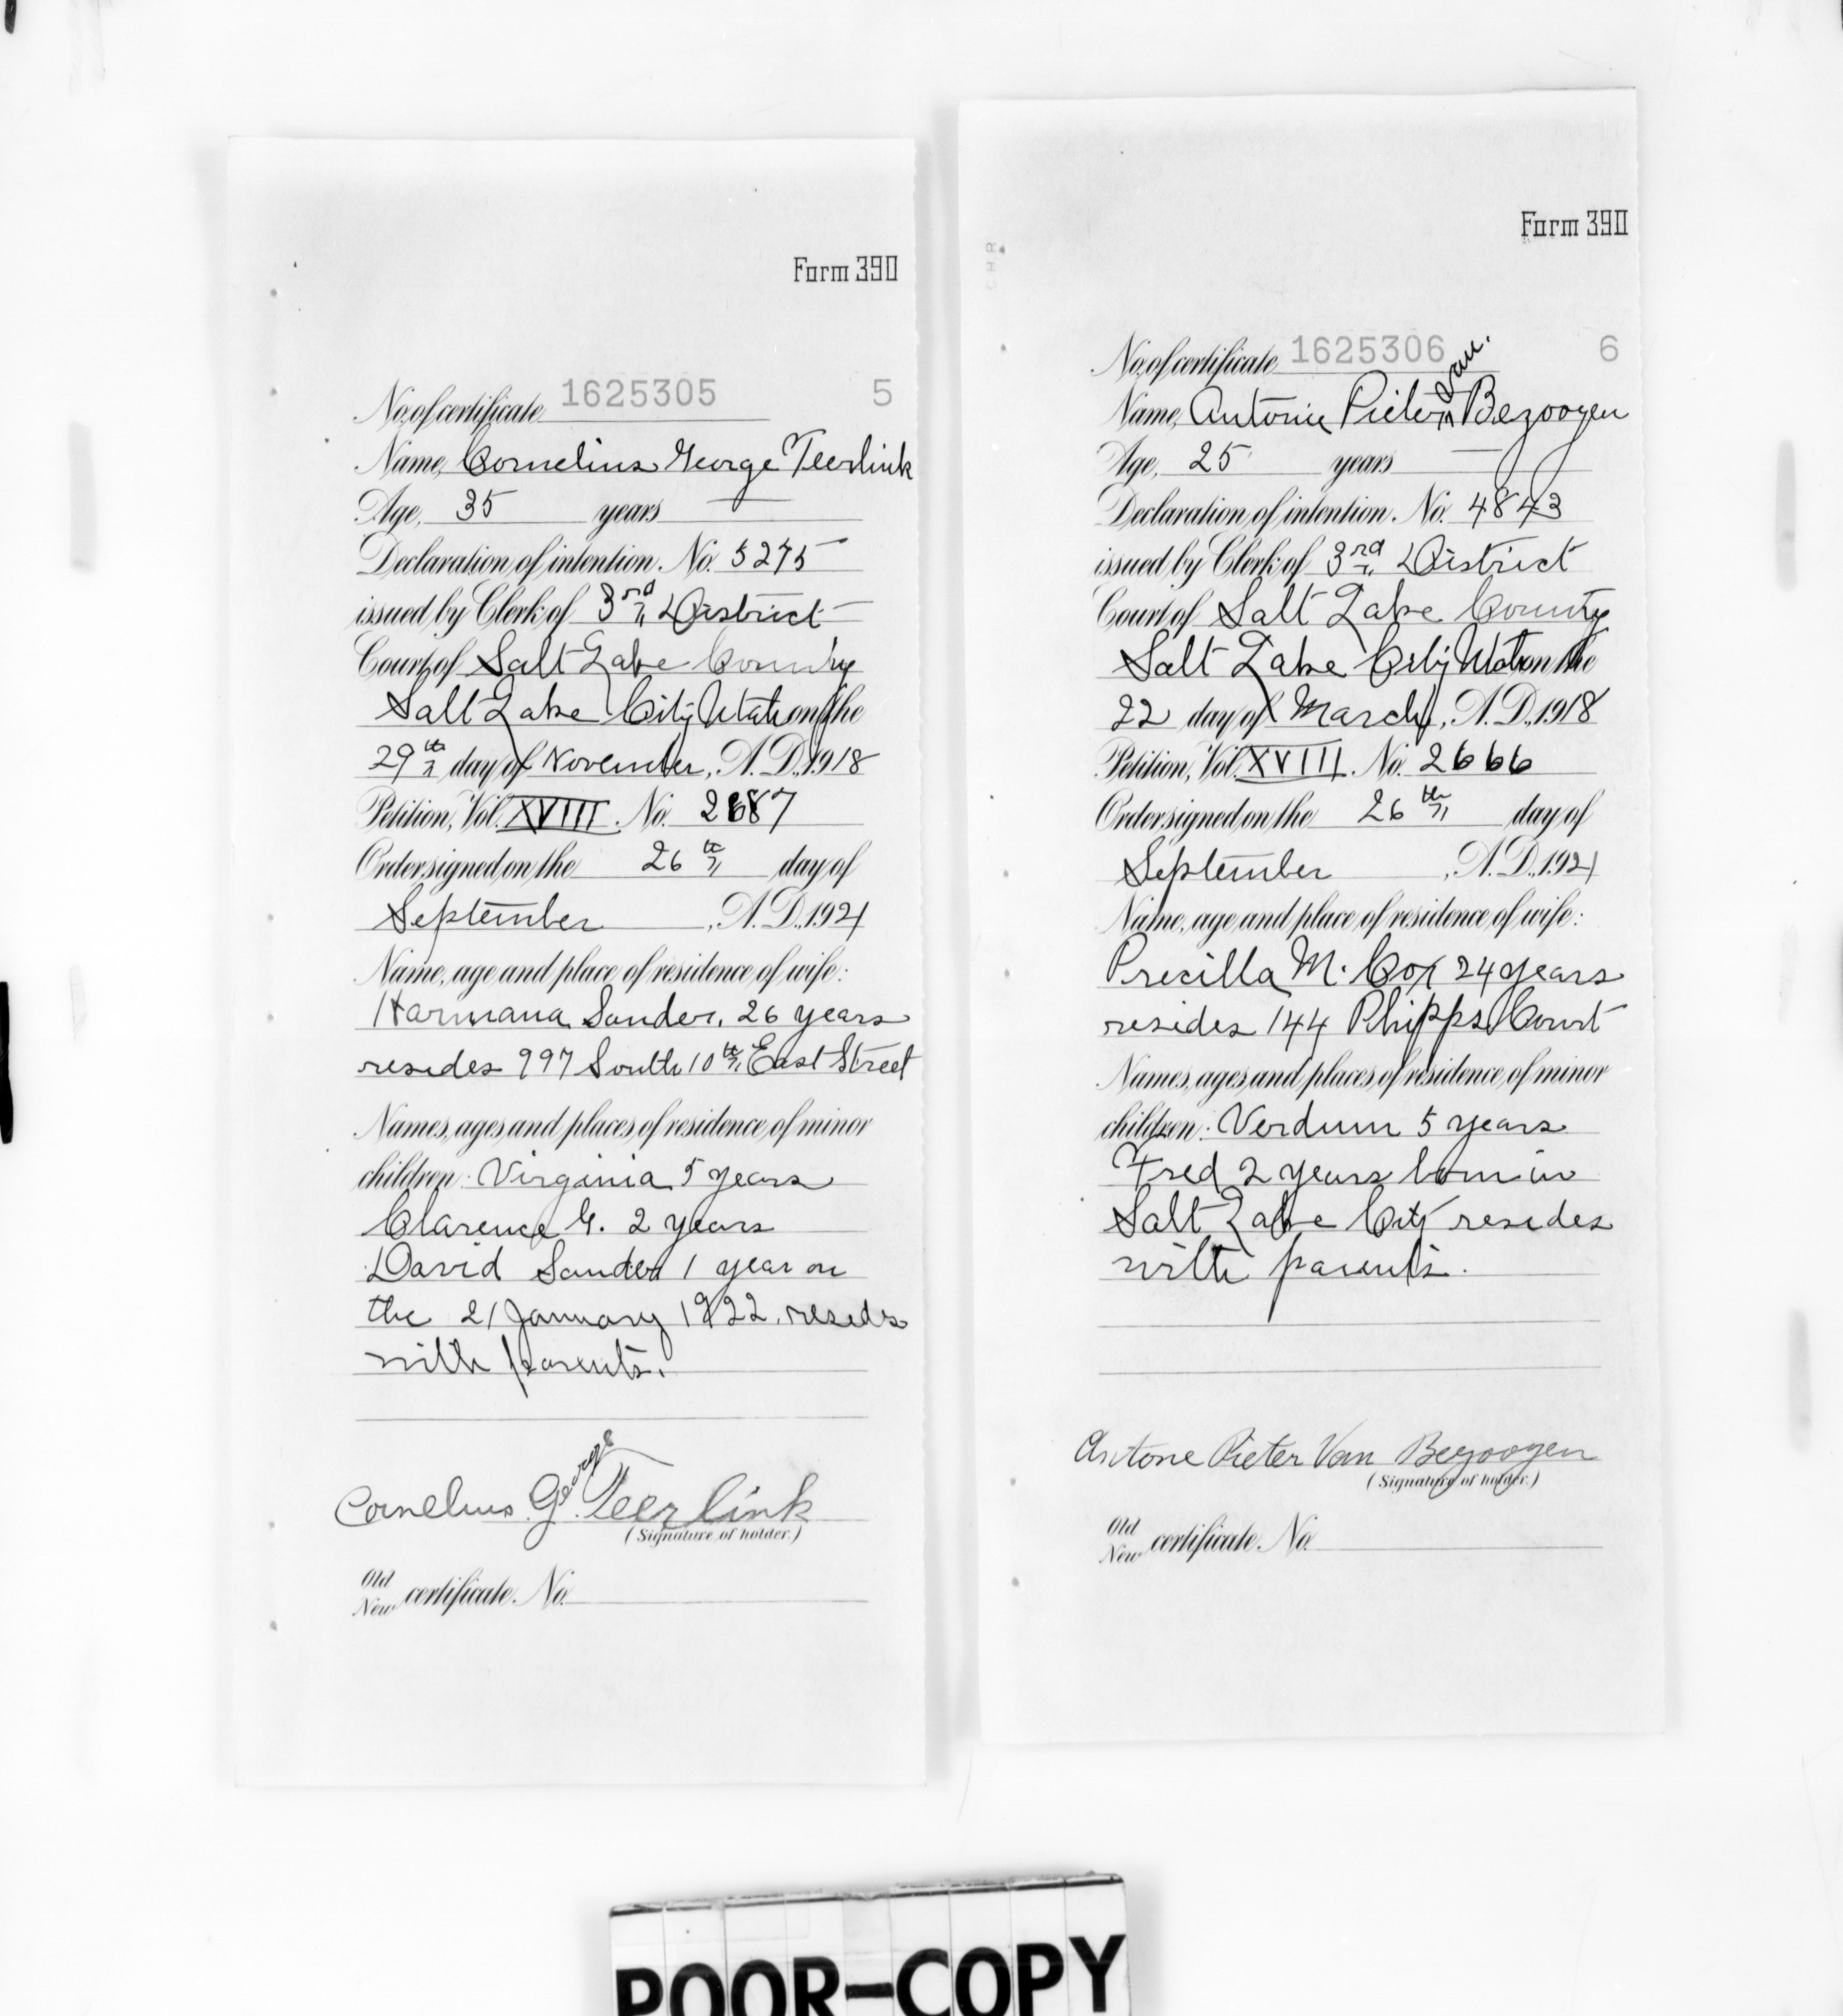 Form 390
No. of certificate 1625305 5
Name, Cornelius George Teerlink
Age, 35 years
Declaration of intention. No. 5275
issued by Clerk of 3rd District
Court of Salt Lake County
Salt Lake City Utah on the
29th day of November, A.D. 1918
Petition, Vol. XVIII. No. 2687
Order signed on the 26th day of
September, A.D. 1921
Name, age and place of residence of wife:
Harmana Sander, 26 years
resides 997 South 10th East Street
Names, ages and places of residence of minor
children: Virginia 5 years
Clarence G. 2 years
David Sander 1 year on
the 21 January 1922. resides
with parents.
George
Cornelius G. Teerlink
(Signature of holder.)
Old
New certificate. No.
Form 390
CHR
No. of certificate 1625306 6
van.
Name, Antonie Pieter Bezooyen
Age, 25 years
Declaration of intention. No. 4843
issued by Clerk of 3rd District
Court of Salt Lake County
Salt Lake City Utah on the
22 day of March, A.D. 1918
Petition, Vol. XVIII. No. 2666
Order signed on the 26th day of
September, A.D. 1921
Name, age and place of residence of wife:
Precilla M. Cox 24 years
resides 144 Phipps Court
Names, ages and places of residence of minor
children: Verdum 5 years
Fred 2 years born in
Salt Lake City resides
with parents.
Antone Pieter Van Bezooyen
(Signature of holder.)
Old
New certificate. No.
POOR-COPY